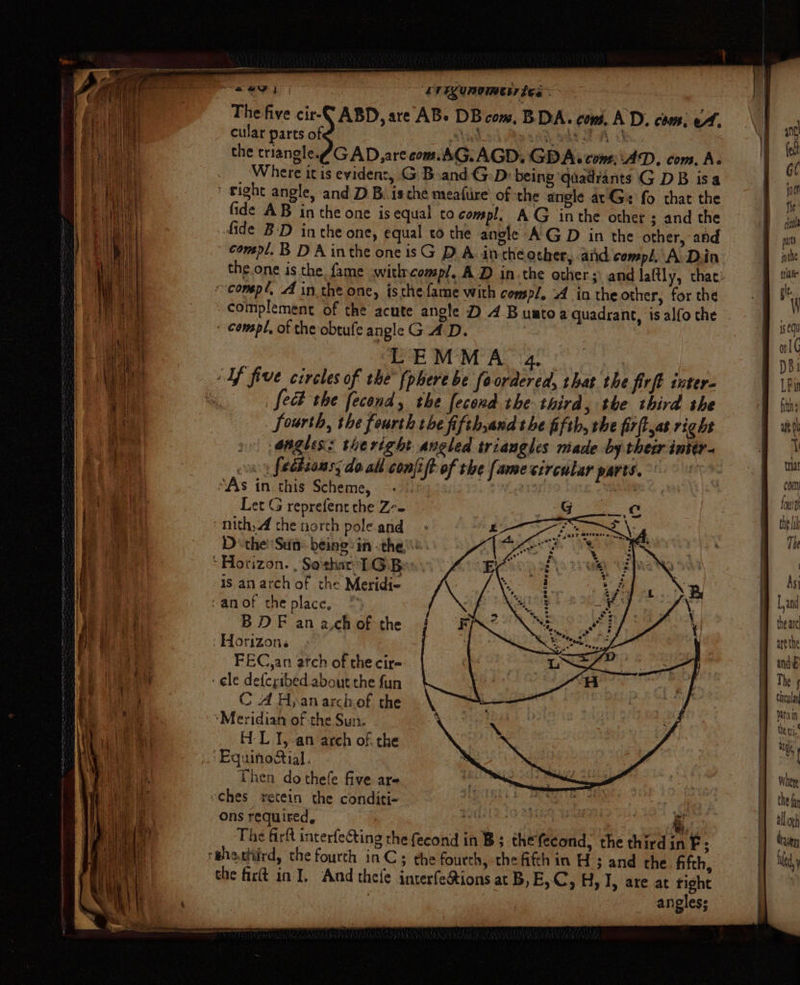 Trigonometrics
The five cir-{ ABD, are AB. DB com. BDA. com. AD. com. A.
cular parts of
the triangle. { GAD, are com. AG. AGD. GDA. com. AD. com. A.
Where it is evident, G B and G D being quadrants G D B is a
right angle, and D B is the meaſure of the angle at G: ſo that the
ſide A B in the one is equal to compl. A G in the other; and the
ſide B D in the one, equal to the angle A G D in the other, and
compl. B D A in the one is G D A in the other, and compl. A D in
the one is the ſame with compl. A D in the other; and laſtly, that
compl. A in the one, is the ſame with compl. A in the other, for the
complement of the acute angle D A B unto a quadrant, is alſo the
compl. of the obtuſe angle G A D.
LEMMA 4.
If five circles of the ſphere be ſo ordered, that the firſt inter-
ſect the ſecond, the ſecond the third, the third the
fourth, the fourth the fifth, and the fifth, the firſt, at right
angles: the right angled triangles made by their inter-
ſections, do all conſiſt of the ſame circular parts.
As in this Scheme,
Let G repreſent the Ze-
nith, A the north pole and
D the Sun being in the
Horizon. So that I G B
is an arch of the Meridi-
an of the place,
B D F an arch of the
Horizon.
F E C, an arch of the cir-
cle deſcribed about the ſun
C A H, an arch of the
Meridian of the Sun.
H L I, an arch of the
Equinoctial.
Then do theſe five ar-
ches retein the conditi-
ons required.
The firſt interſecting the ſecond in B; the ſecond, the third in F;
the third, the fourth in C; the fourth, the fifth in H; and the fifth,
the firſt in I. And theſe interſections at B, E, C, H, I, are at right
angles;
G
C
E
A
B
F
L
D
H
I